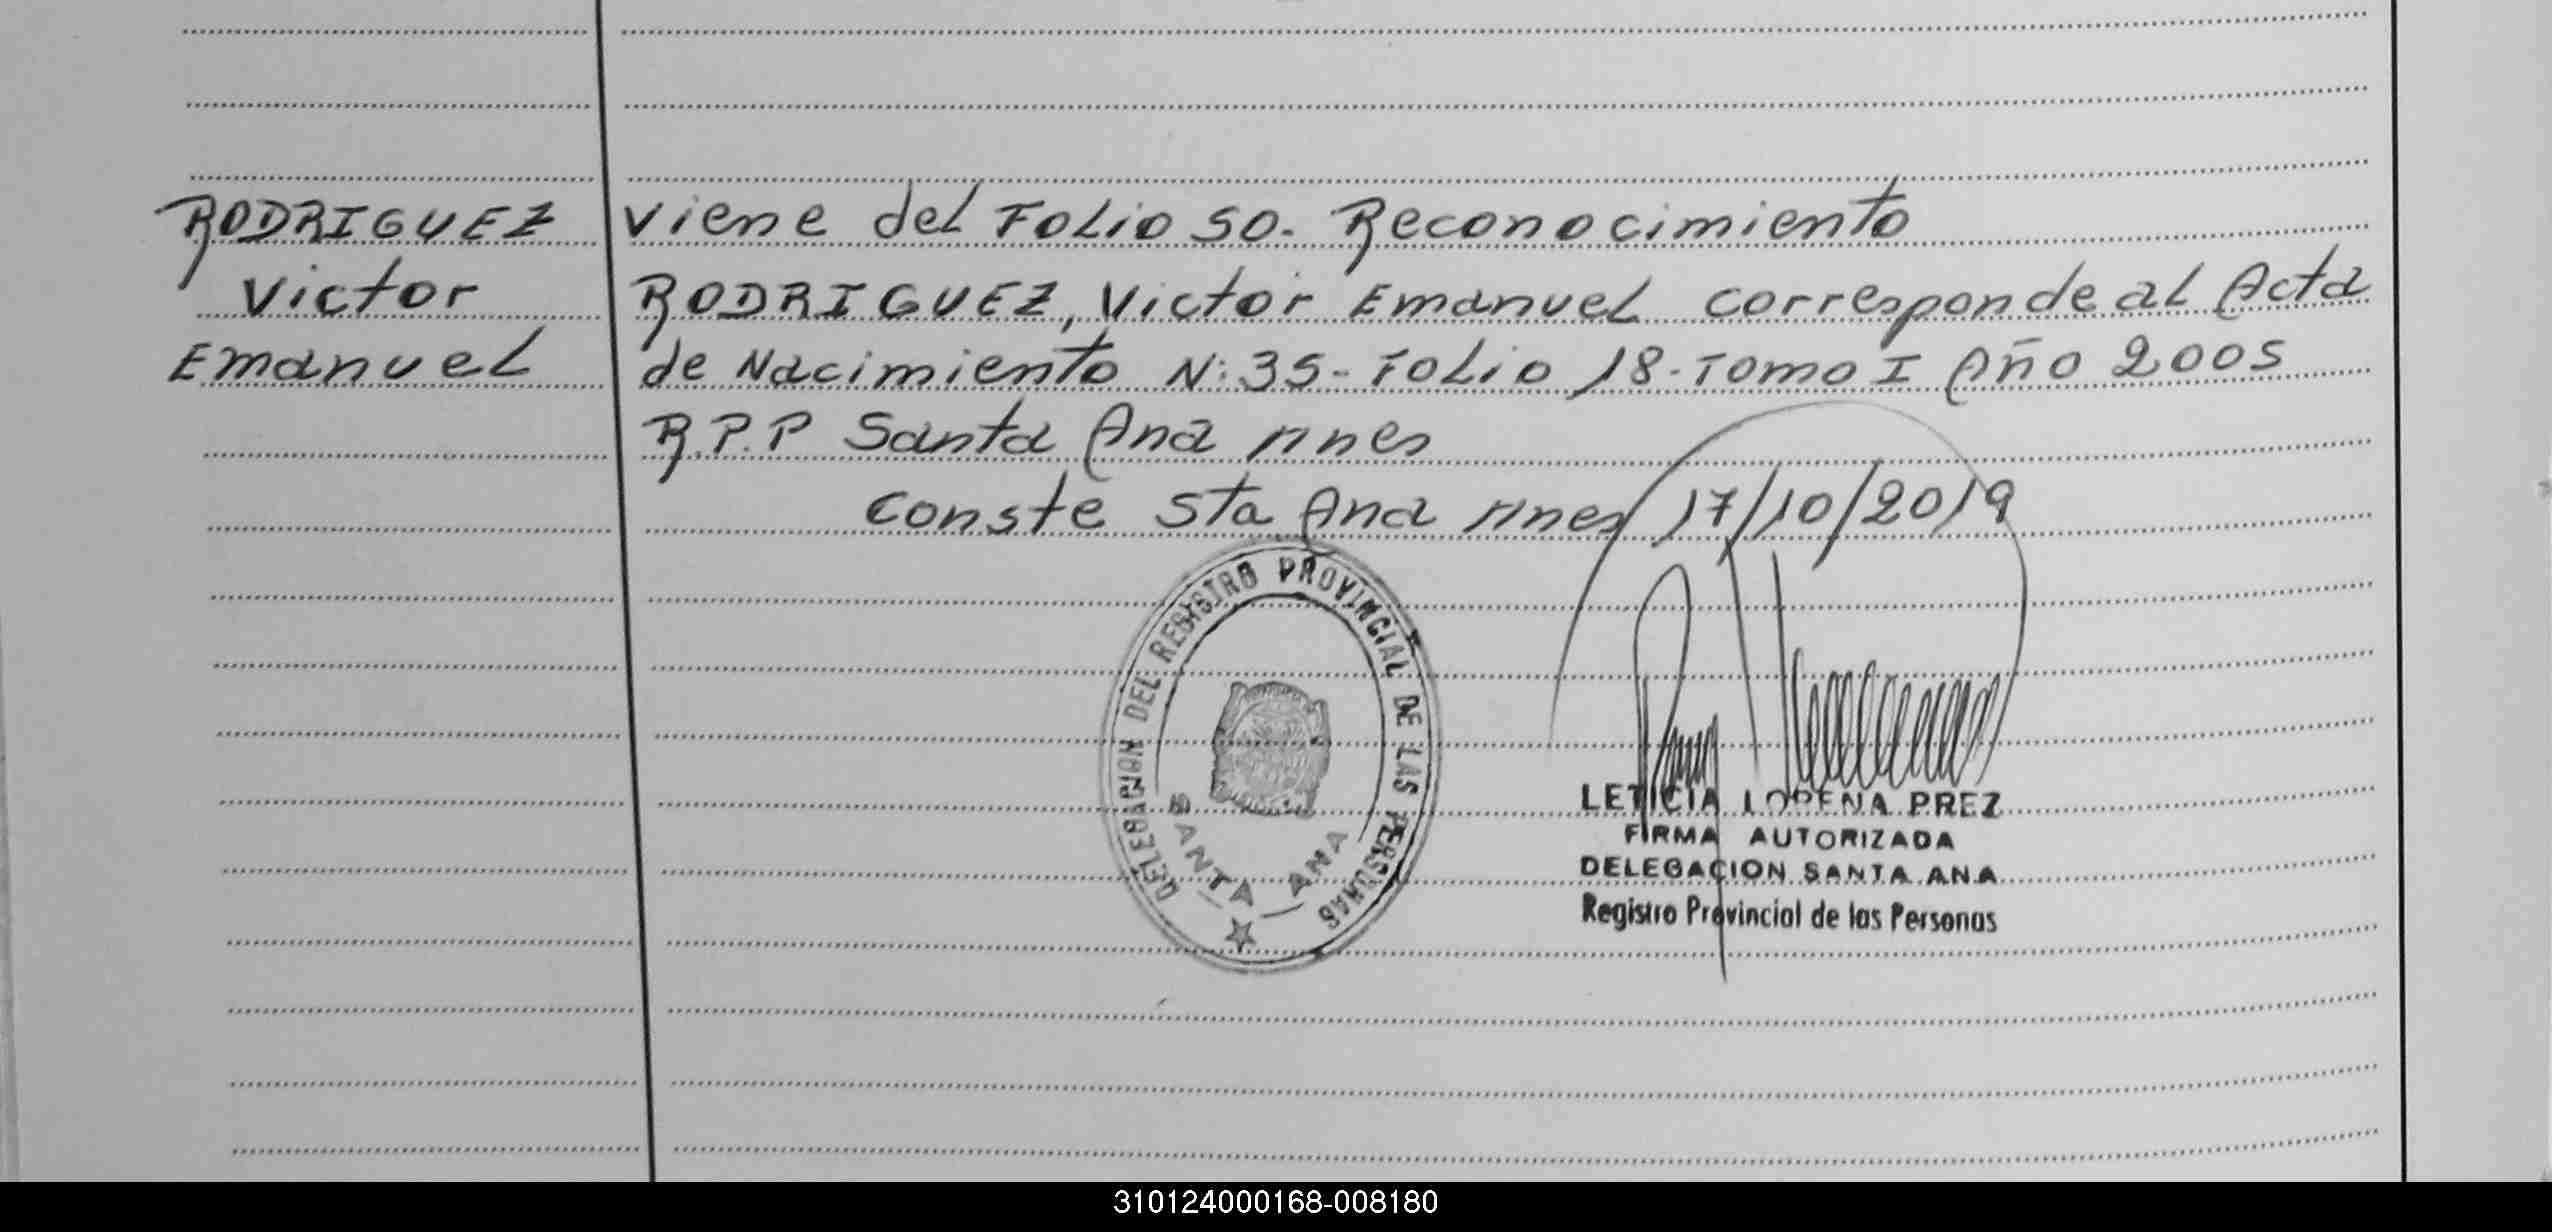 RODRIGUEZ
Victor
Emanuel
Viene del Folio 50. Reconocimiento
RODRIGUEZ, Victor Emanuel corresponde al Acta
de Nacimiento N: 35 - Folio 18 - Tomo I Año 2005
R.P.P Santa Ana Mnes
Conste Sta Ana Mnes 17/10/2019
DELEGACION DEL REGISTRO PROVINCIAL DE LAS PERSONAS
SANTA ANA
LETICIA LORENA PREZ
FIRMA AUTORIZADA
DELEGACION SANTA ANA
Registro Provincial de las Personas
310124000168-008180